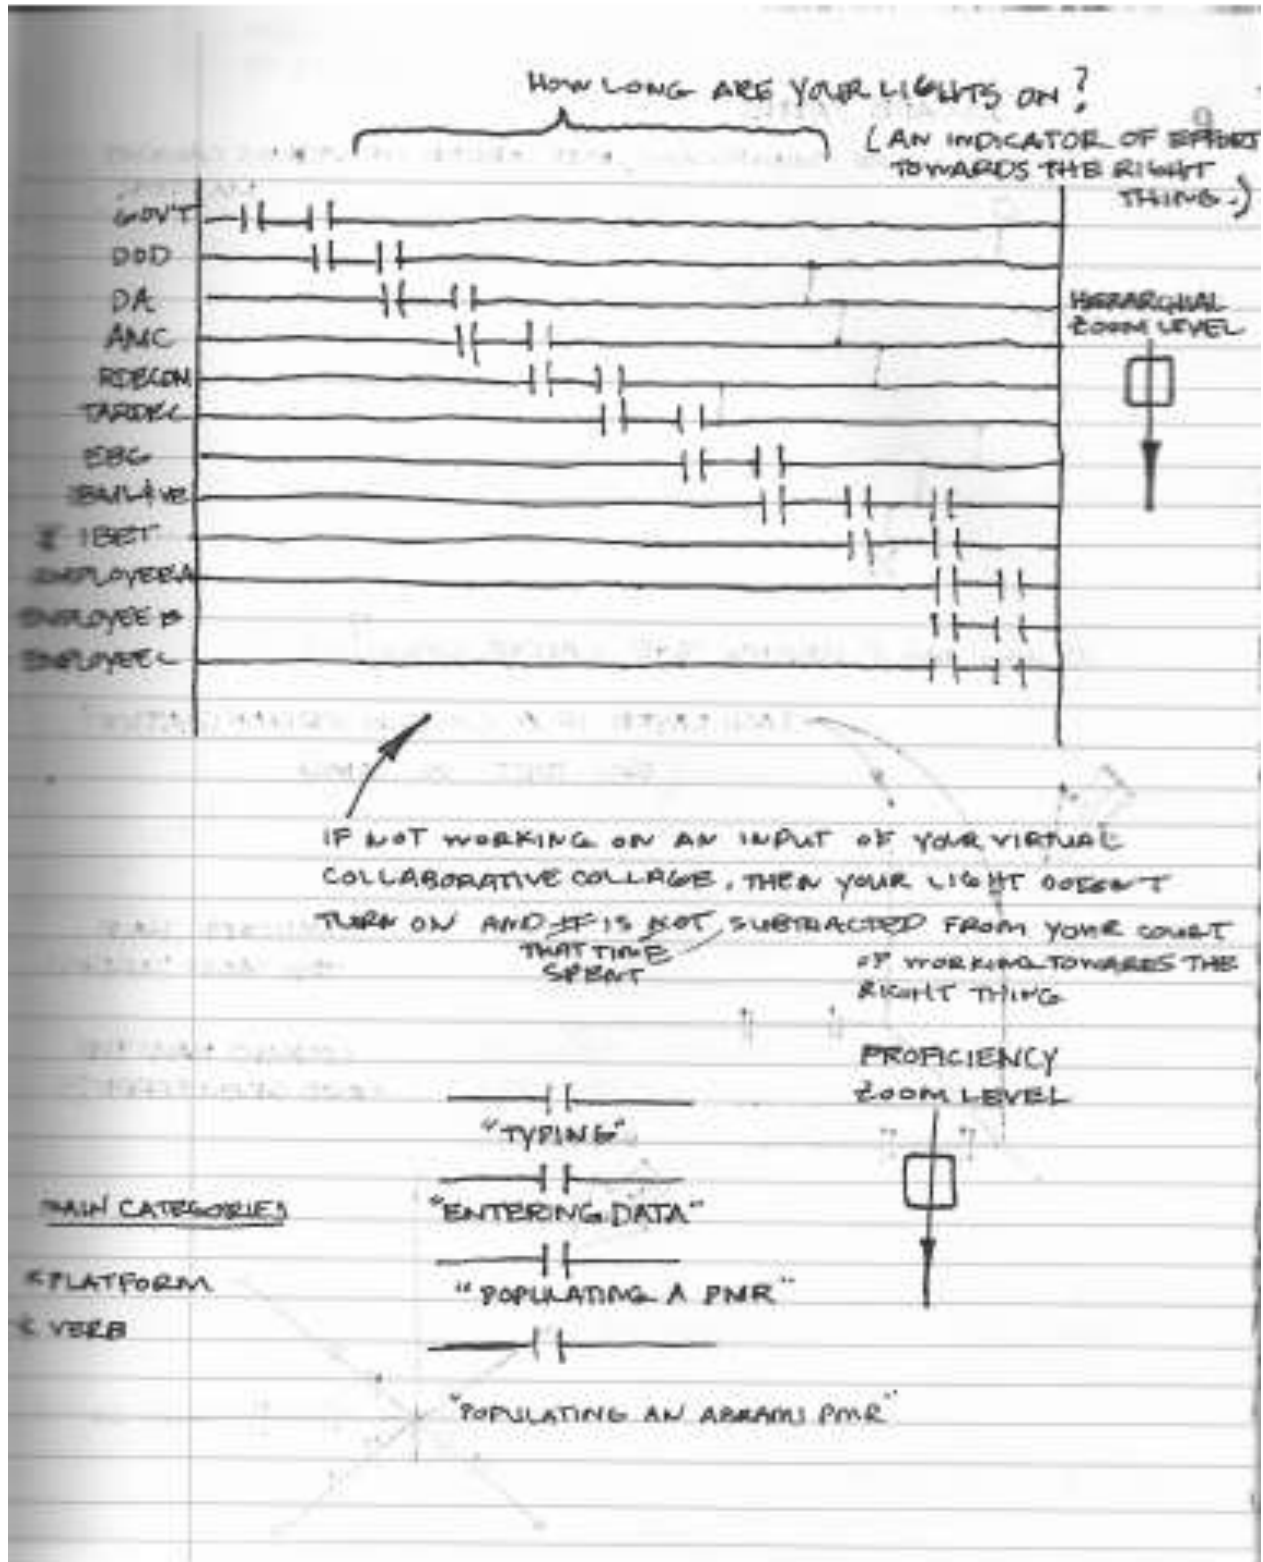 HOW LONG ARE YOUR LIGHTS ON?
(AN INDICATOR OF EFFORT
TOWARDS THE RIGHT
THING.)
GOV'T
DOD
DA
AMC
RDECOM
TARDEC
EBG
IBET
EMPLOYEE A
EMPLOYEE B
EMPLOYEE C
HIERARCHIAL
ZOOM LEVEL
IF NOT WORKING ON AN INPUT OF YOUR VIRTUAL
COLLABORATIVE COLLAGE, THEN YOUR LIGHT DOESN'T
TURN ON AND IF IS NOT SUBTRACTED FROM YOUR COUNT
THAT TIME
SPENT
OF WORKING TOWARDS THE
RIGHT THING
PROFICIENCY
ZOOM LEVEL
"TYPING"
"ENTERING DATA"
"POPULATING A PMR"
"POPULATING AN ABRAMS PMR"
MAIN CATEGORIES
*PLATFORM
* VERB